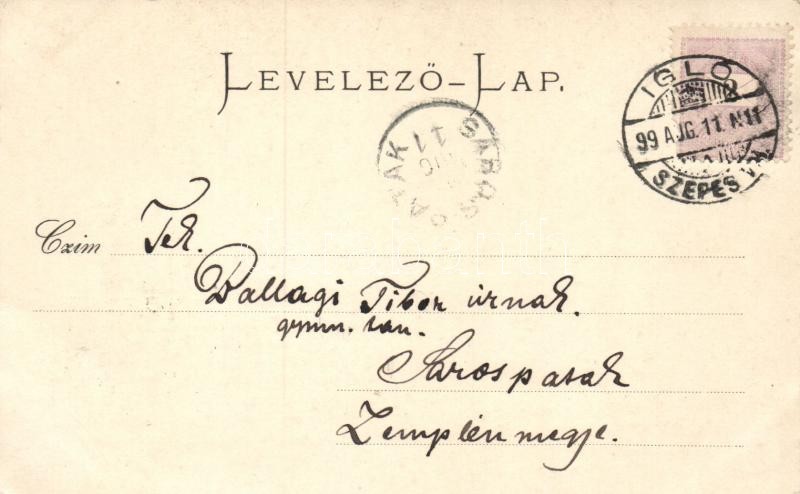 LEVELEZŐ-LAP.
IGLÓ
99 AUG. 11. N11
SZEPES VM.
SÁROSPATAK
AUG
11
Czim Tek.
Ballagi Tibor úrnak.
gymn. tan.
Sárospatak
Zemplénmegye.